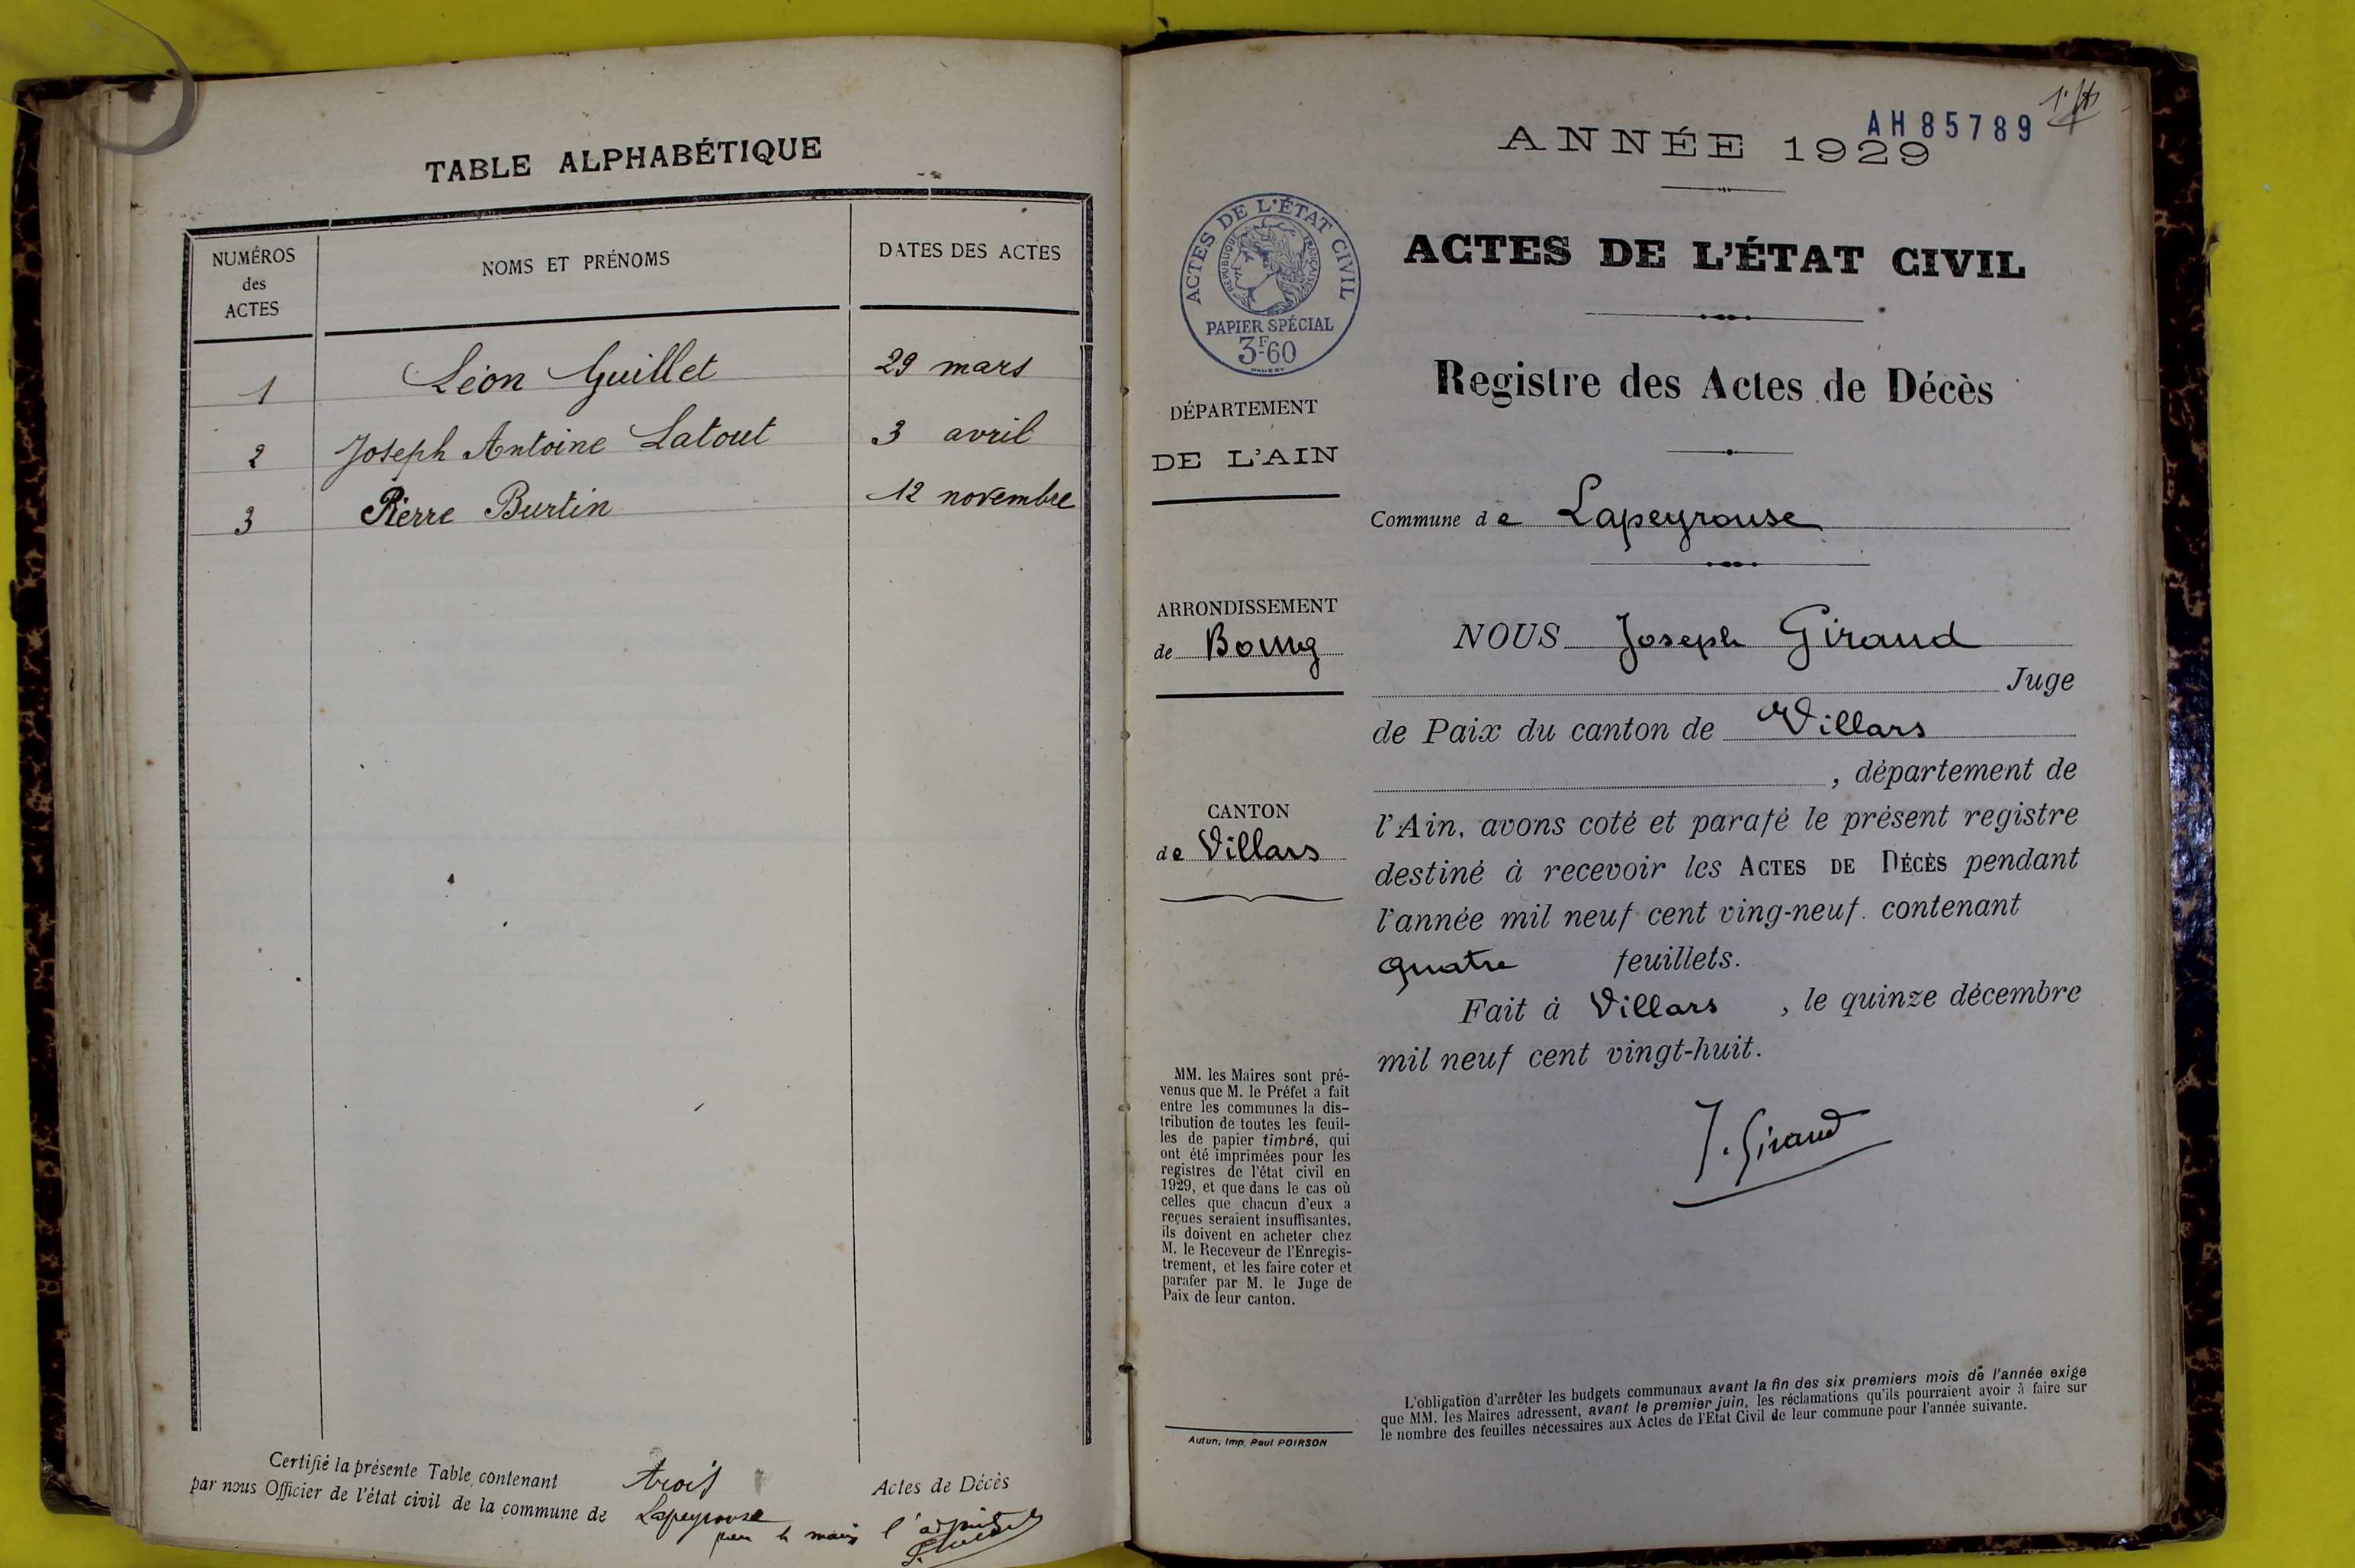 TABLE ALPHABÉTIQUE
NUMÉROS
des
ACTES
NOMS ET PRÉNOMS
DATES DES ACTES
1 Léon Guillet 29 mars
2 Joseph Antoine Latout 3 avril
3 Pierre Burtin 12 novembre
Certifié la présente Table contenant trois Actes de Décès
par nous Officier de l'état civil de la commune de Lapeyrouse
pour le maire l'adjoint
AH85789
ANNÉE 1929
ACTES DE L'ÉTAT CIVIL
RÉPUBLIQUE FRANÇAISE
PAPIER SPÉCIAL
3F60
ACTES DE L'ÉTAT CIVIL
Registre des Actes de Décès
DÉPARTEMENT
DE L'AIN
Commune de Lapeyrouse
ARRONDISSEMENT
de Bourg
CANTON
de Villars
NOUS Joseph Giraud
Juge
de Paix du canton de Villars
, département de
l'Ain, avons coté et parafé le présent registre
destiné à recevoir les ACTES DE DÉCÈS pendant
l'année mil neuf cent ving-neuf. contenant
quatre feuillets.
Fait à Villars , le quinze décembre
mil neuf cent vingt-huit.
J. Giraud
MM. les Maires sont pré-
venus que M. le Préfet a fait
entre les communes la dis-
tribution de toutes les feuil-
les de papier timbré, qui
ont été imprimées pour les
registres de l'état civil en
1929, et que dans le cas où
celles que chacun d'eux a
reçues seraient insuffisantes,
ils doivent en acheter chez
M. le Receveur de l'Enregis-
trement, et les faire coter et
parafer par M. le Juge de
Paix de leur canton.
Autun, Imp. Paul POIRSON
L'obligation d'arrêter les budgets communaux avant la fin des six premiers mois de l'année exige
que MM. les Maires adressent, avant le premier juin, les réclamations qu'ils pourraient avoir à faire sur
le nombre des feuilles nécessaires aux Actes de l'Etat Civil de leur commune pour l'année suivante.